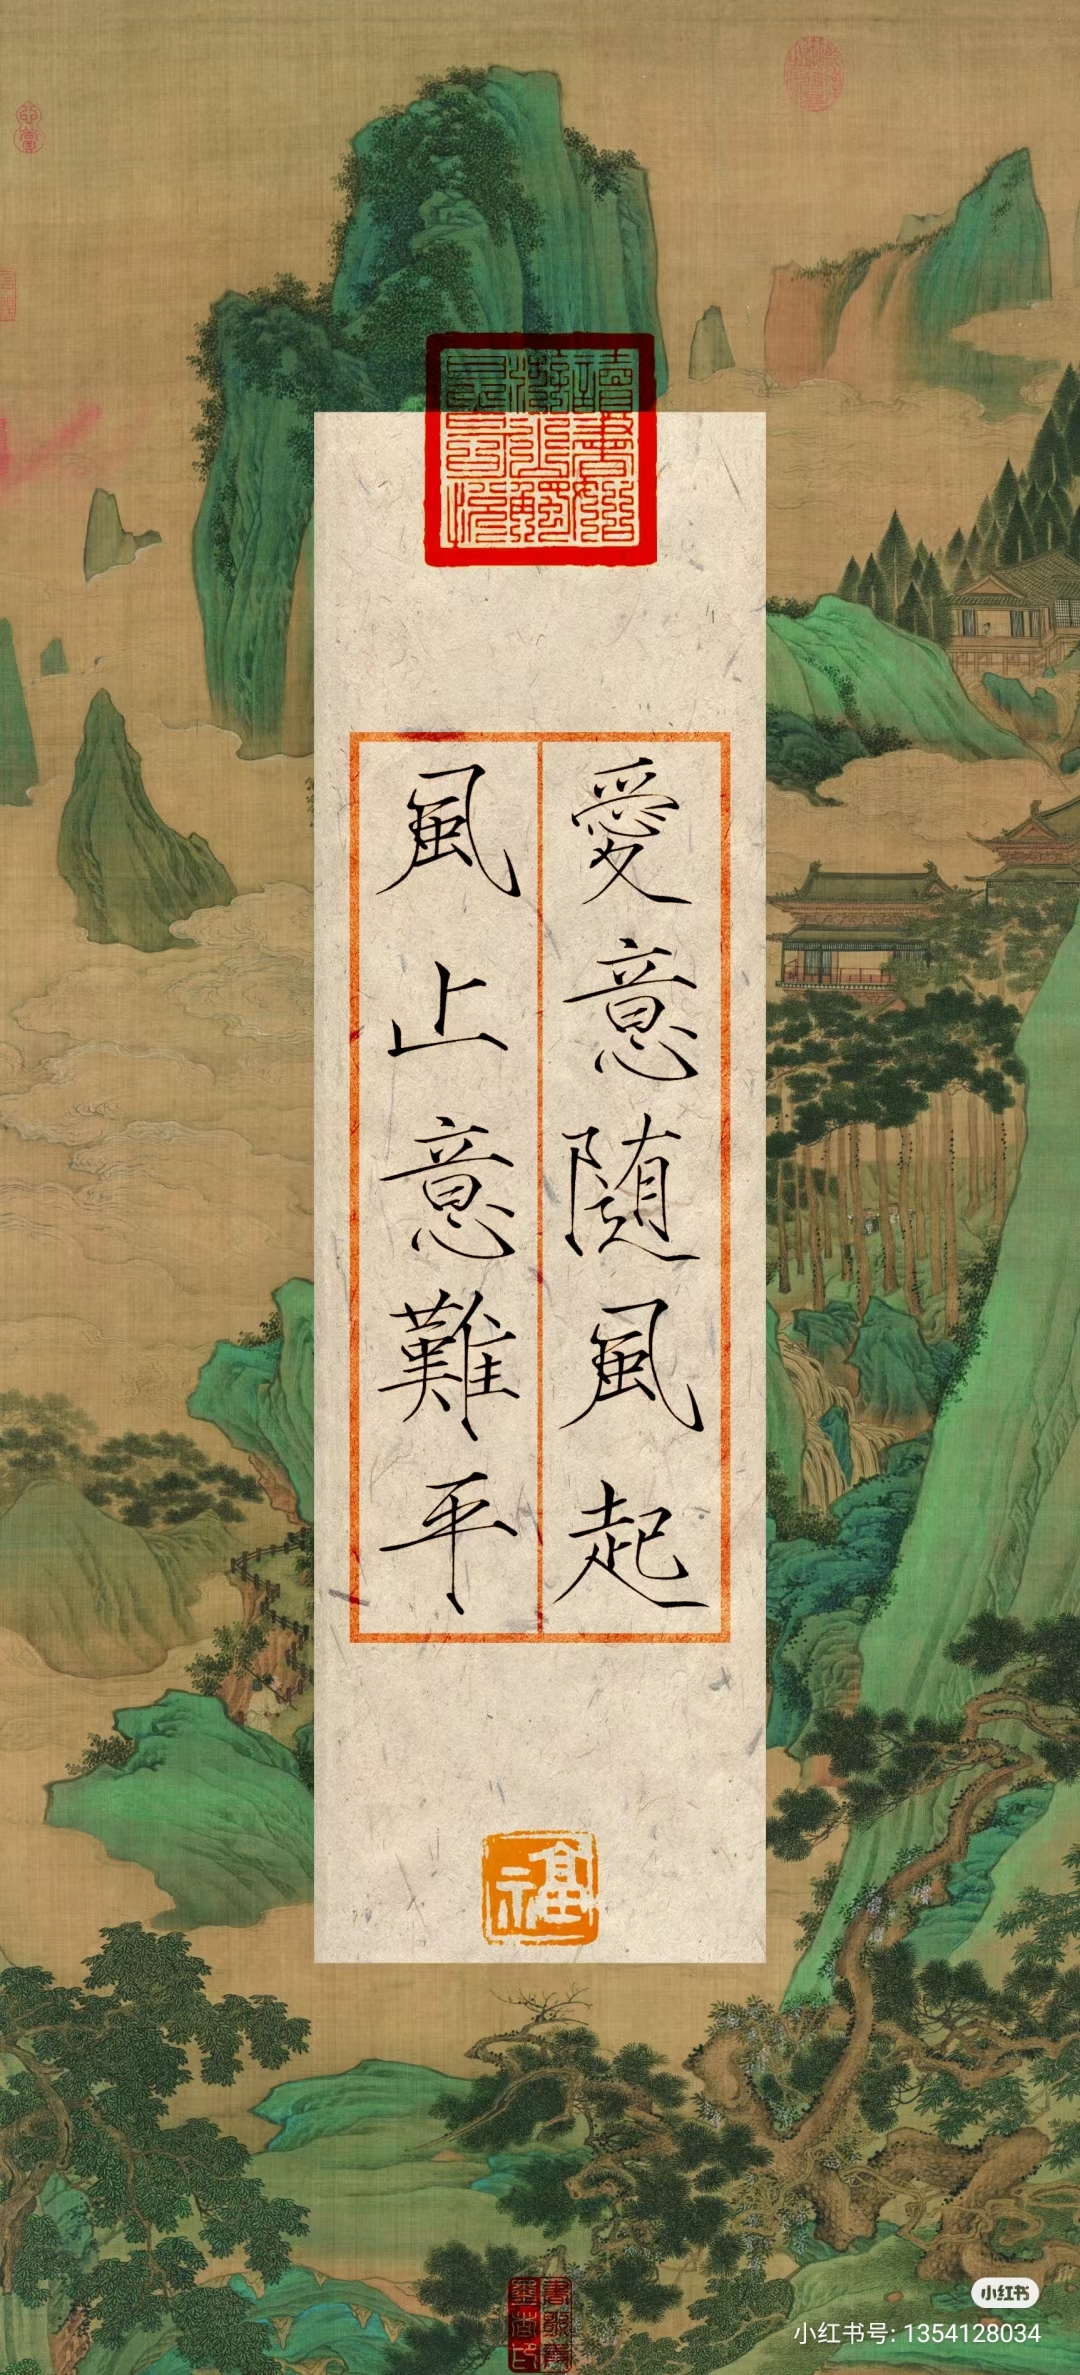 愛意随風起
風止意難平
小红书
小红书号: 1354128034